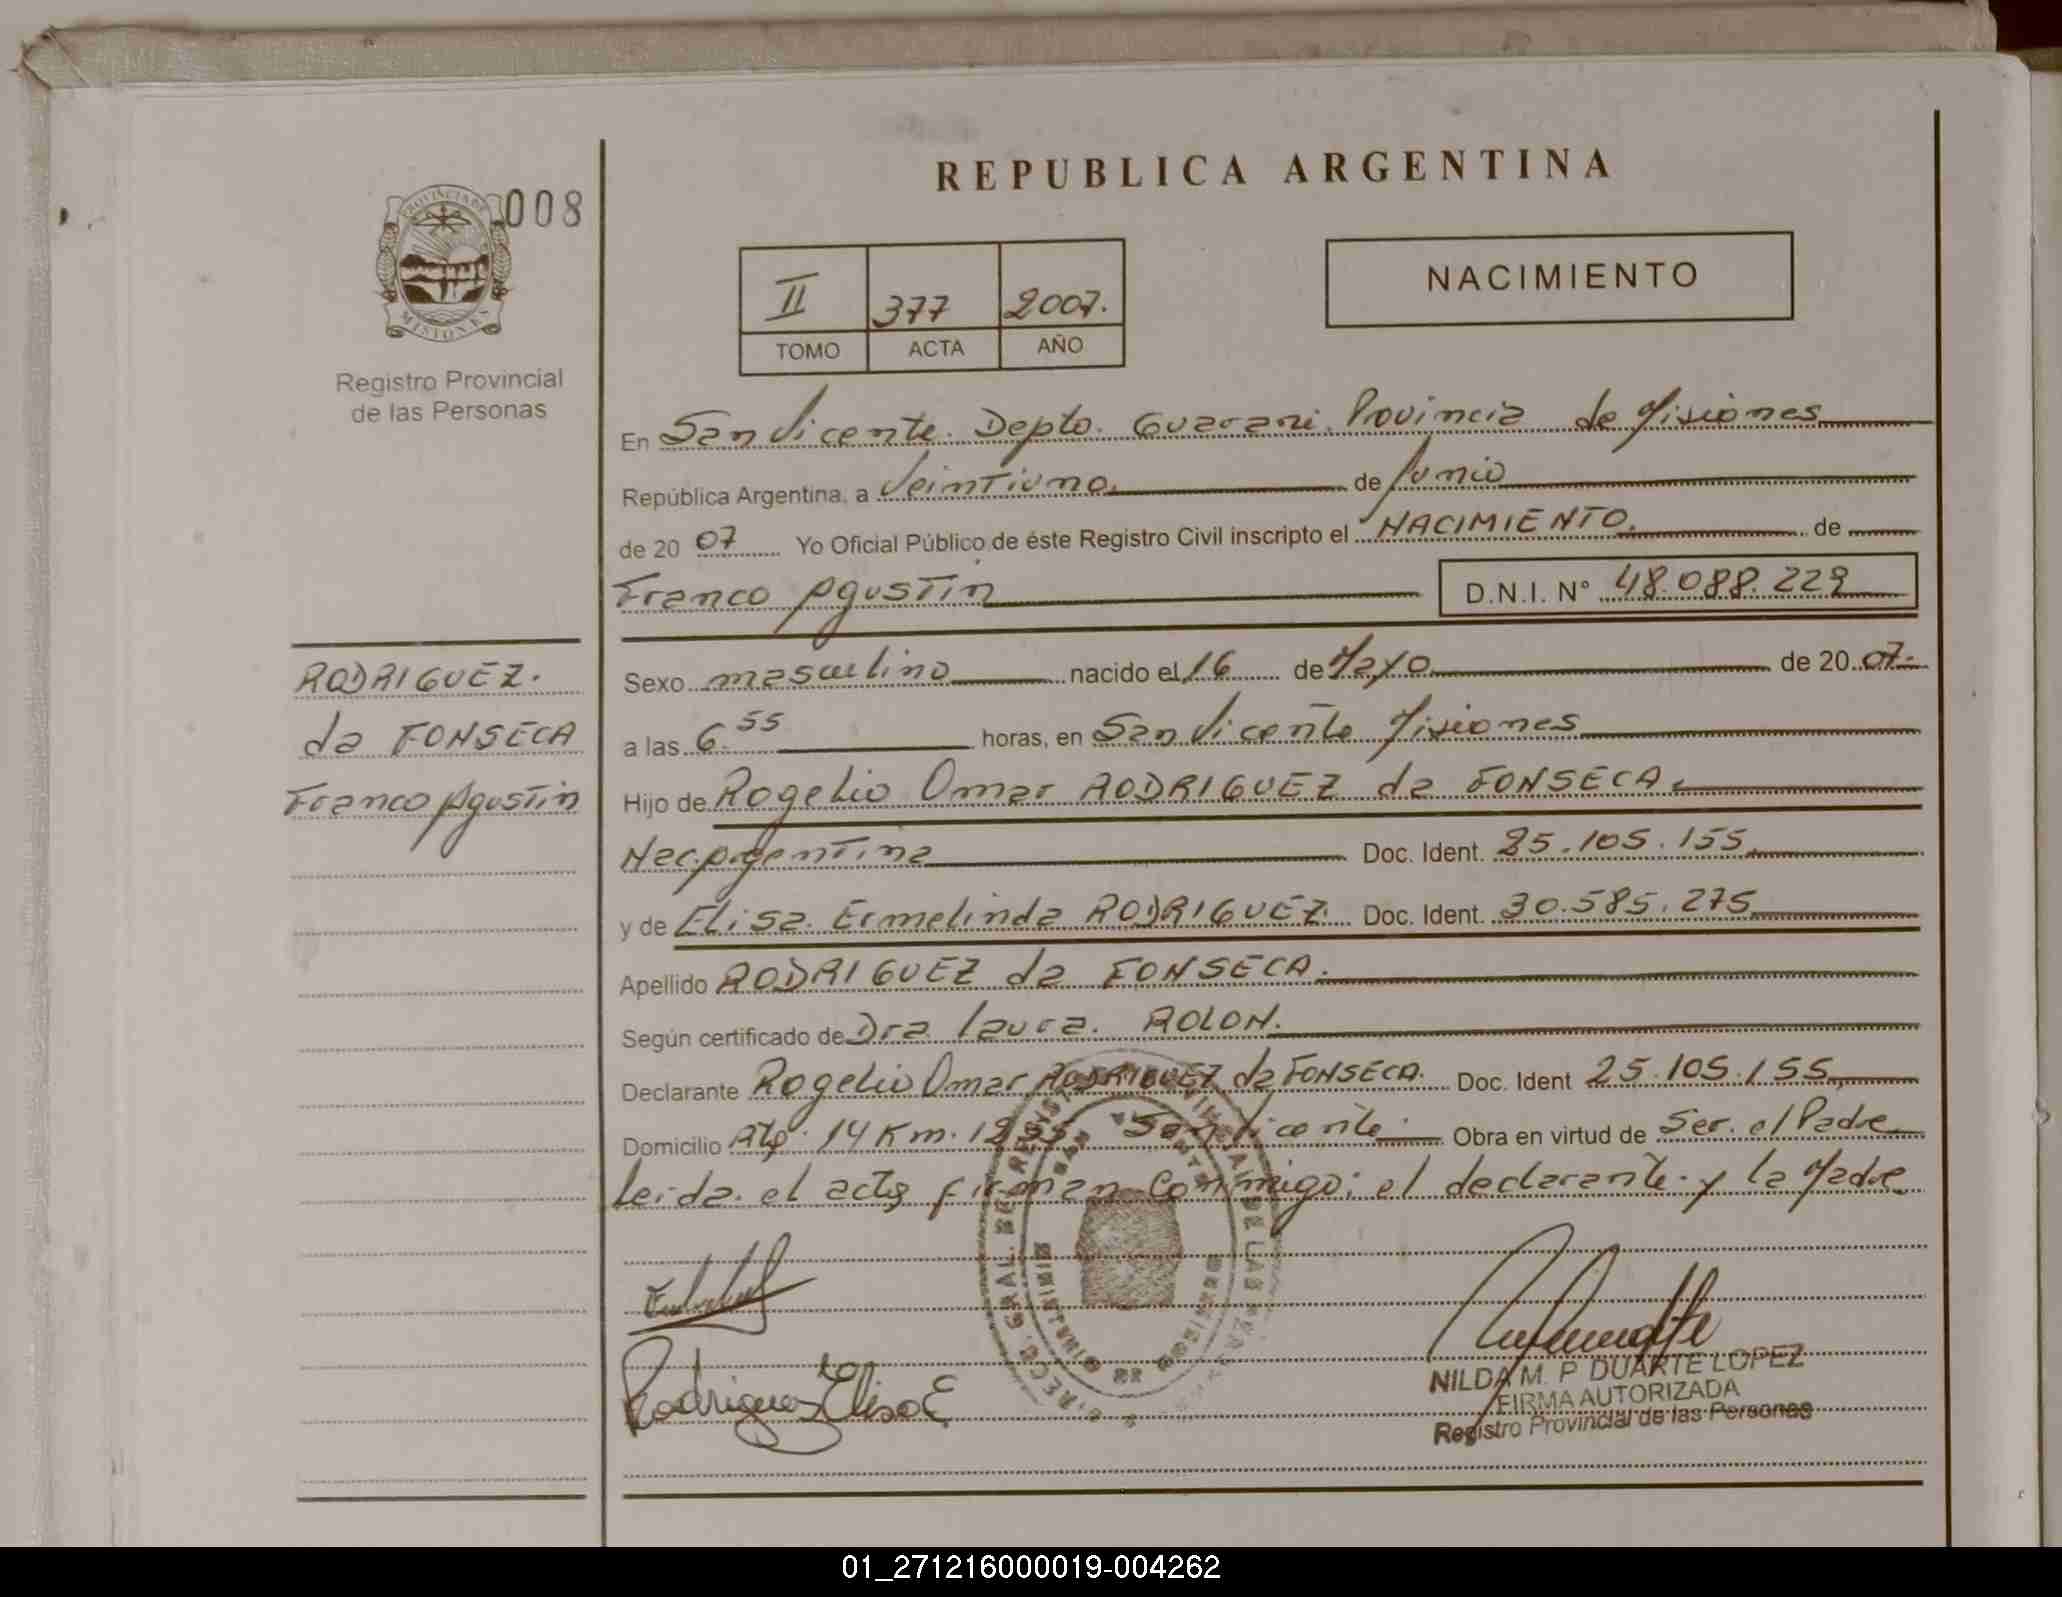 008
PROVINCIA DE
MISIONES
Registro Provincial
de las Personas
RODRIGUEZ.
da FONSECA
Franco Agustin
REPUBLICA ARGENTINA
II 377 2007.
TOMO ACTA AÑO
NACIMIENTO
En San Vicente. Depto. Guarani. Provincia de Misiones
República Argentina, a Veintiuno. de Junio
de 2007 Yo Oficial Público de éste Registro Civil inscripto el NACIMIENTO. de
Franco Agustin D.N.I. N° 48.088.229
Sexo masculino nacido el 16 de Mayo de 2007.
a las 6.55 horas, en San Vicente Misiones
Hijo de Rogelio Omar RODRIGUEZ da FONSECA.
Nac. Argentina Doc. Ident. 25.105.155.
y de Elisa. Ermelinda RODRIGUEZ. Doc. Ident. 30.585.275
Apellido RODRIGUEZ da FONSECA.
Según certificado de Dra. Laura. ROLON.
Declarante Rogelio Omar RODRIGUEZ da FONSECA. Doc. Ident 25.105.155.
Domicilio Rta. 14 Km. San Vicente. Obra en virtud de Ser. el Padre
leida. el acta firman conmigo; el declarante. y la Madre
Rodriguez Elisa E
NILDA M. P. DUARTE LOPEZ
FIRMA AUTORIZADA
Registro Provincial de las Personas
01_271216000019-004262